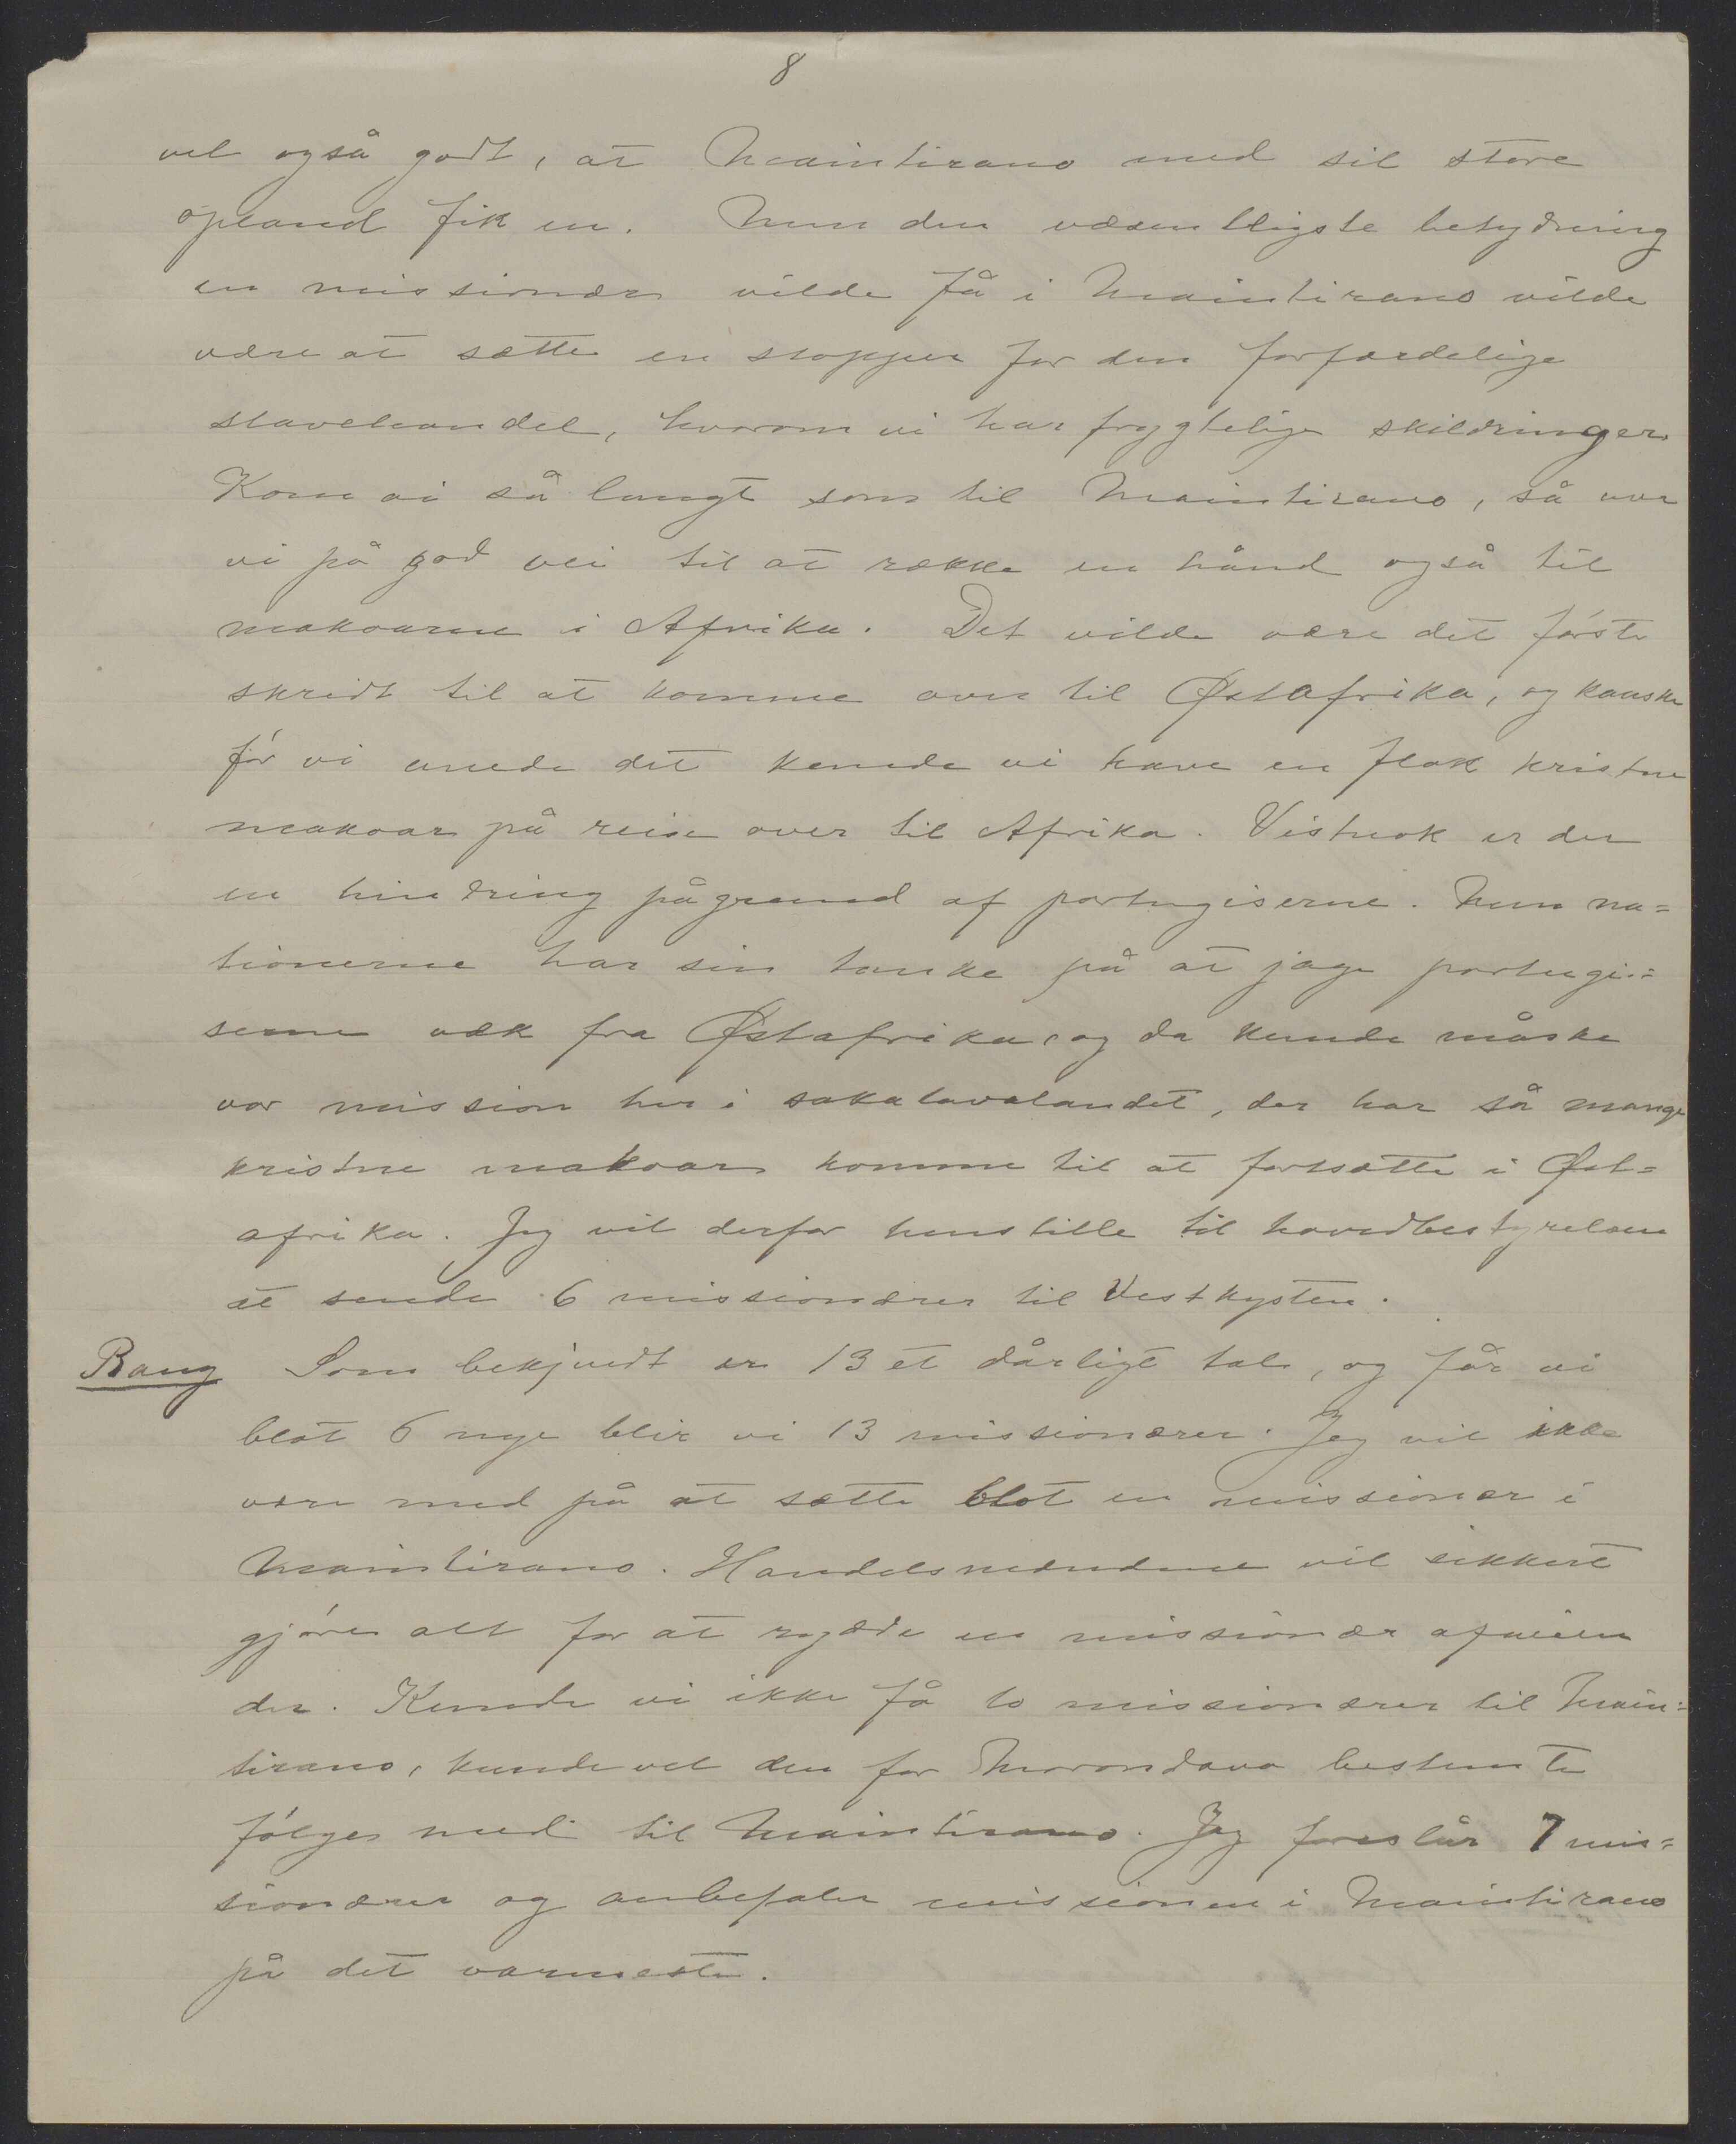 8
vel også godt, at Maintirano med sit store
opland fik en. Men den væsentligste betydning
en missionær vilde få i Maintirano vilde
være at sætte en stopper for den forfærdelige
slavehandel, hvorom vi har frygtelige skildringer.
Kom vi så langt som til Maintirano, så var
vi på god vei til at række en hånd også til
makoarne i Afrika. Det vilde være det første
skridt til at komme over til Østafrika, og kanske
før vi anede det kunde vi have en flok kristne
makoar på reise over til Afrika. Vistnok er der
en hindring pågrund af portugiserne. Men na=
tionerne har sin tanke på at jage portugi=
serne væk fra Østafrika, og da kunde måske
vor mission her i sakalavalandet, der har så mange
kristne makoar komme til at fortsætte i Øst=
afrika. Jeg vil derfor henstille til hovedbestyrelsen
at sende 6 missionærer til Vestkysten.
Bang Som bekjendt er 13 et dårligt tal, og får vi
blot 6 nye blir vi 13 missionærer. Jeg vil ikke
være med på at sætte blot en missionær i
Maintirano. Handelsmændene vil sikkert
gjøre alt for at rydde en missionær afveien
der. Kunde vi ikke få to missionærer til Main=
tirano, kunde vel den for Morondava bestemte
følge med til Maintirano. Jeg foreslår 7 mis=
sionærer og anbefaler missionen i Maintirano
på det varmeste.